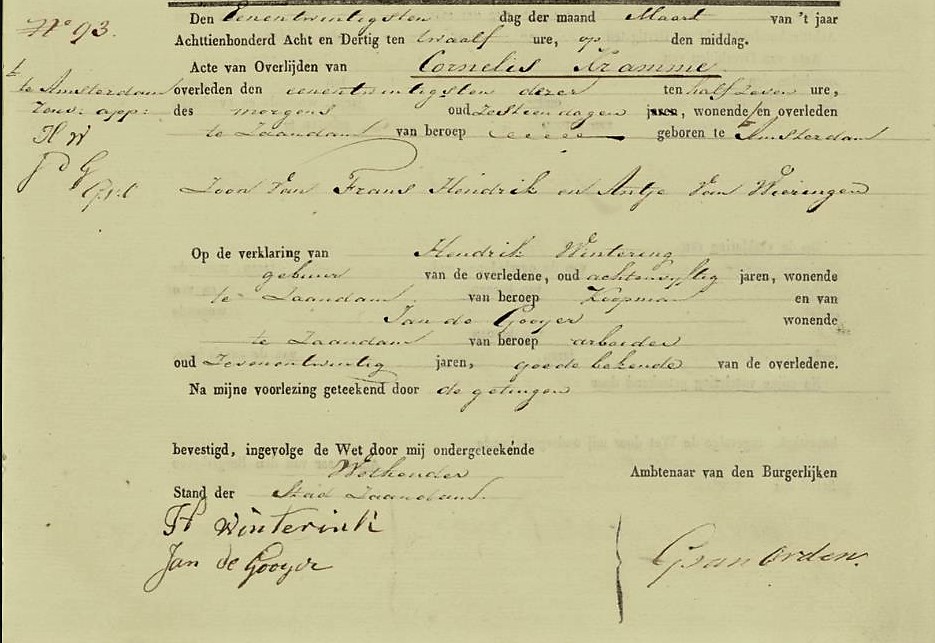 N° 93.
Den Eenentwintigsten dag der maand Maart van 't jaar
Achttienhonderd Acht en Dertig ten twaalf ure, op den middag.
Acte van Overlijden van Cornelis Kramme
te Amsterdam
overleden den eenentwintigsten dezer ten half zeven ure,
app:
des morgens oud Zestien dagen jaren, wonende en overleden
H W
te Zaandam van beroep geboren te Amsterdam
J d G
Zoon Van Frans Hendrik en Antje Van Wieringen
Op de verklaring van Hendrik Wintering
gebuur van de overledene, oud achtenvyftig jaren, wonende
te Zaandam van beroep Koopman en van
Jan de Gooyer wonende
te Zaandam van beroep arbeider
oud Zevenentwintig jaren, goede bekende van de overledene.
Na mijne voorlezing geteekend door de getuigen
bevestigd, ingevolge de Wet door mij ondergeteekende
Wethouder Ambtenaar van den Burgerlijken
Stand der Stad Zaandam.
H Winterink
Jan de Gooyer
G van Orden.